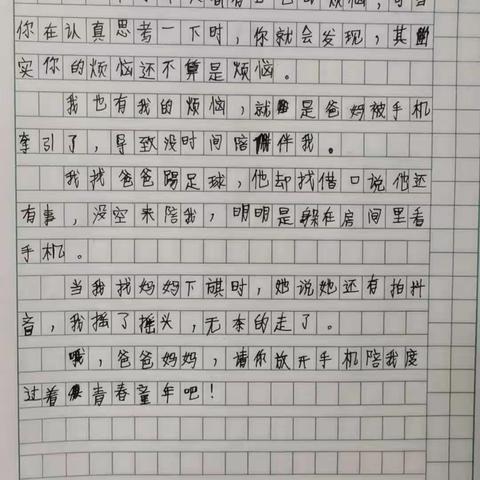 都有自己的烦恼，可当
你在认真思考一下时，你就会发现，其
实你的烦恼还不算是烦恼。
我也有我的烦恼，就是爸妈被手机
牵引了，导致没时间陪伴我。
我找爸爸踢足球，他却找借口说他还
有事，没空来陪我，明明是躲在房间里看
手机。
当我找妈妈下旗时，她说她还有拍抖
音，我摇了摇头，无奈的走了。
哦，爸爸妈妈，请你放开手机陪我度
过着青春童年吧！